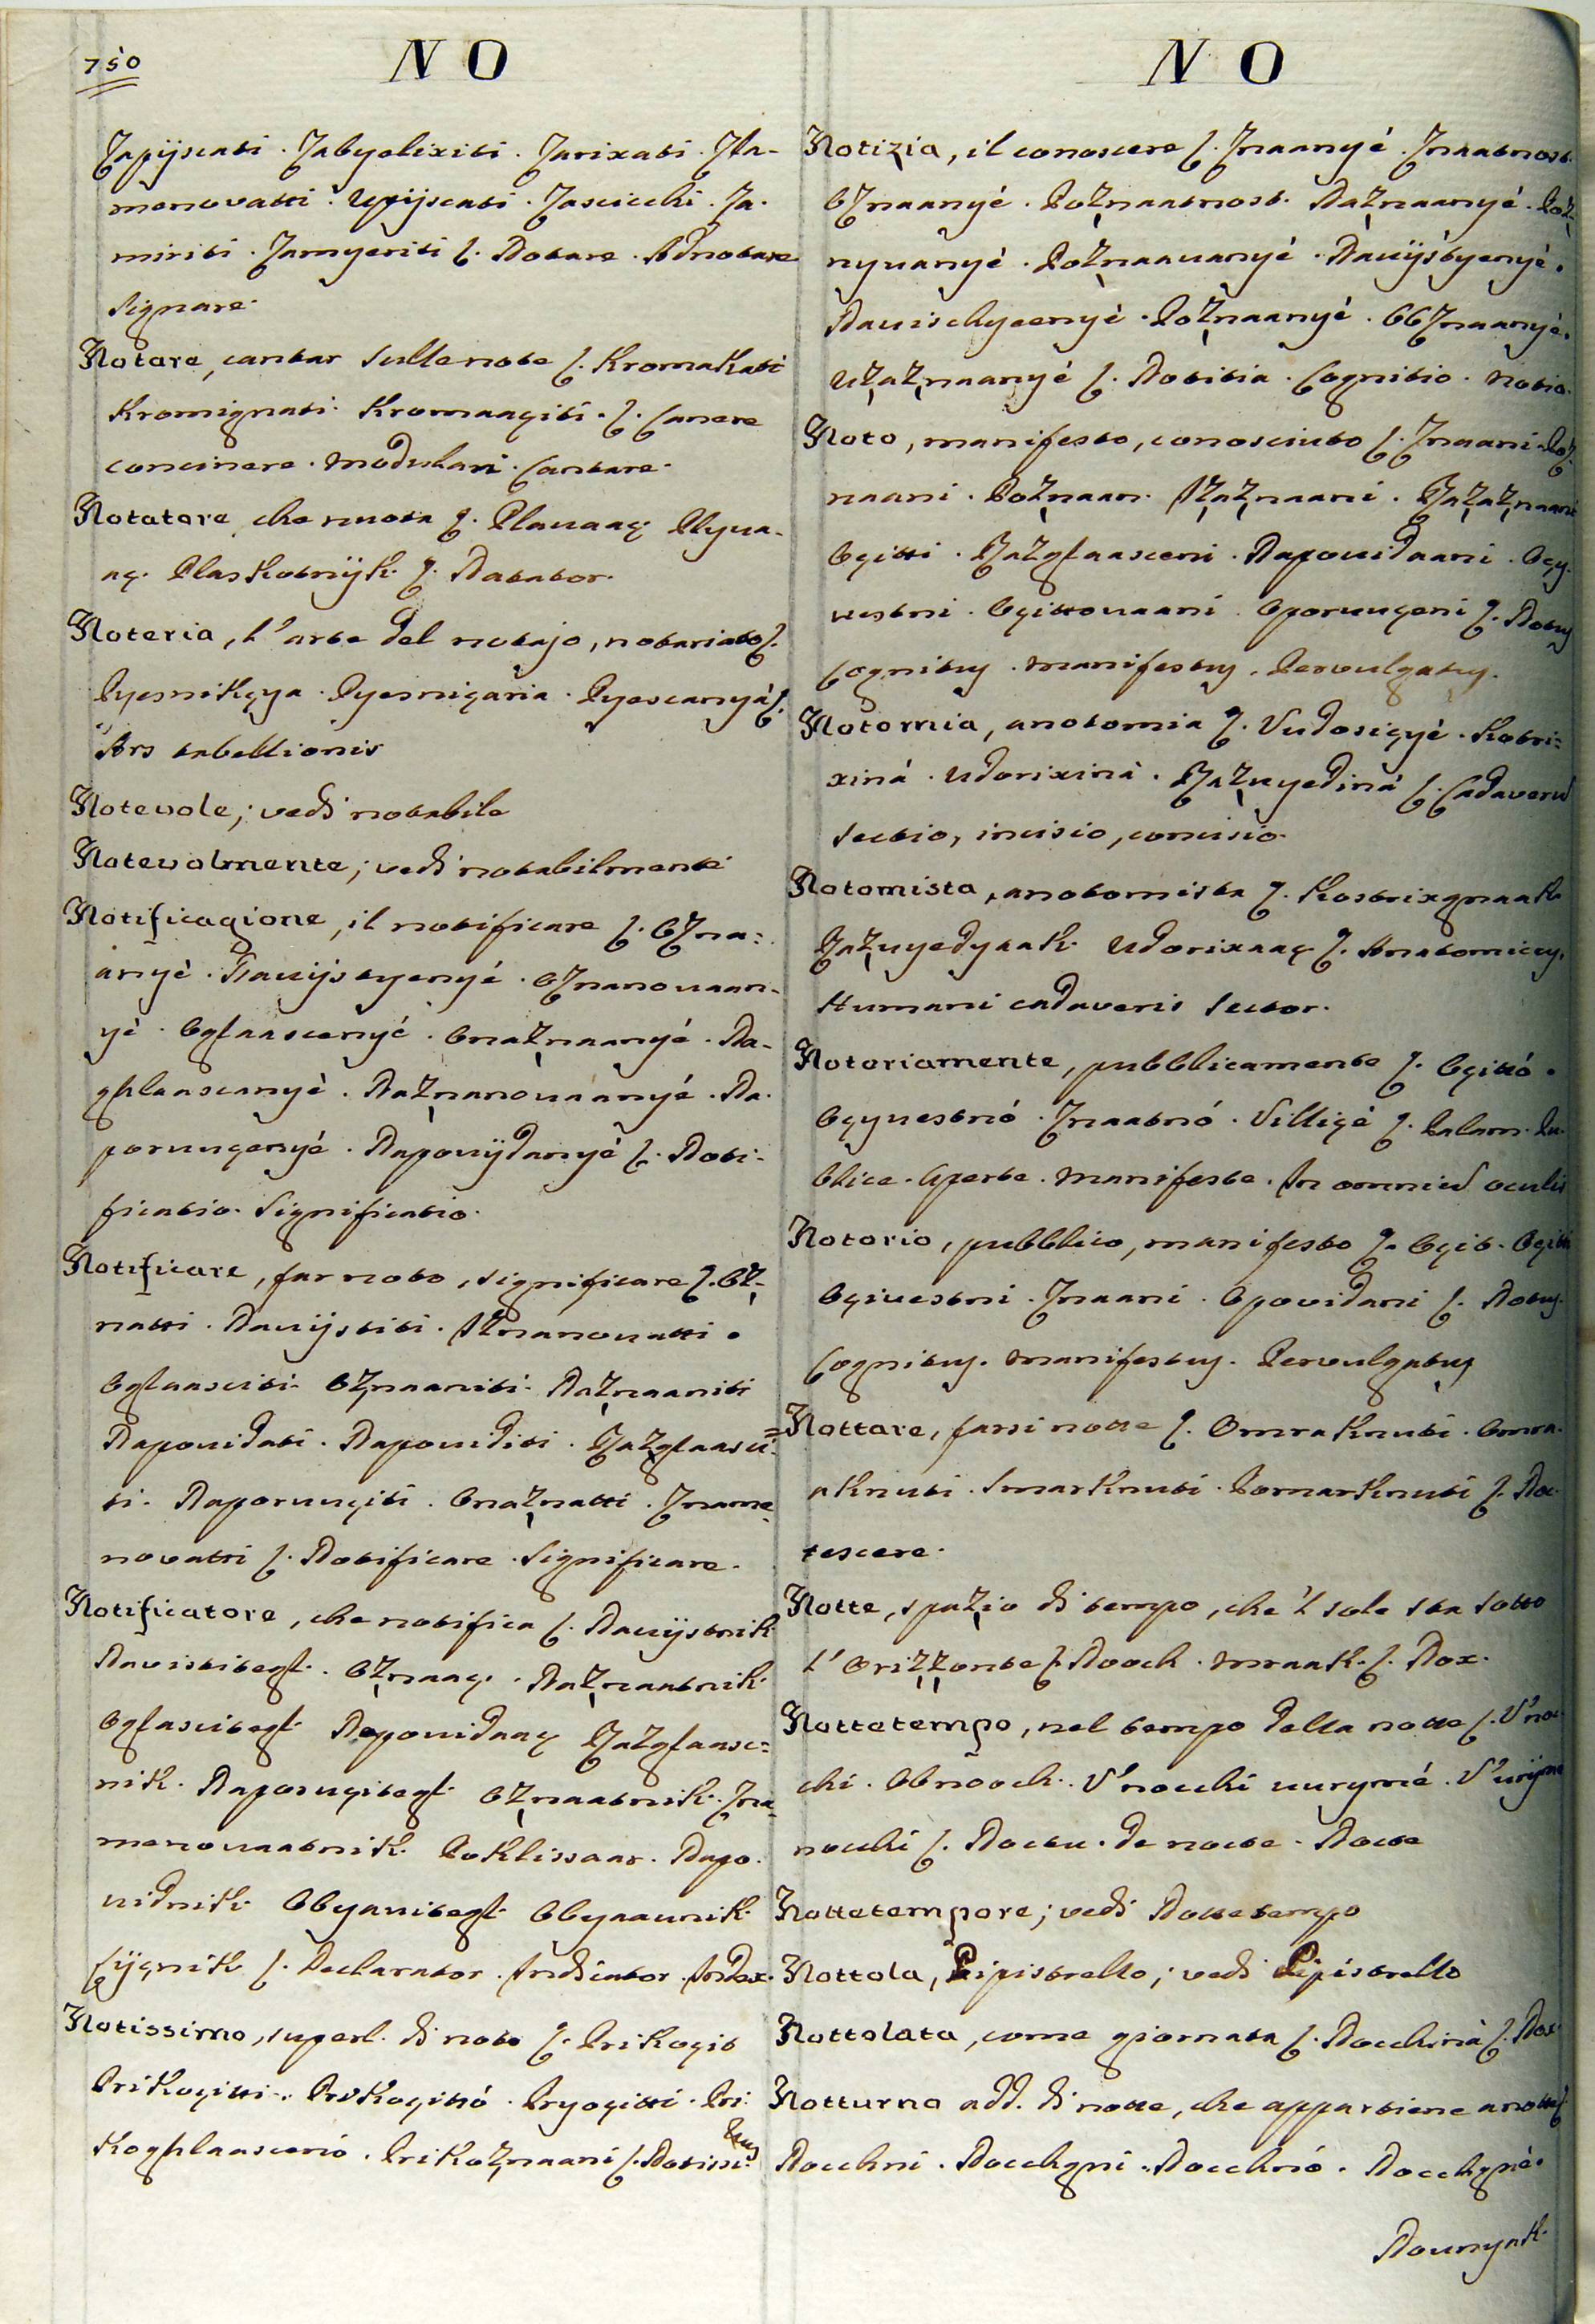 750
N O
Zapijscati. Zabyelixiti. Zarixati. Zla-
menovatti. Upijscati. Zascicchi. Za-
miriti. Zamyeriti ʃ. Notare. Adnotare
Signare.
Notare, cantar sulle note ʃ. Kromakati
Kromignati. Kromaaçiti. ʃ. Canere
concinere. modulari. Cantare.
Notatore, che nuota ʃ. Plauaaç Plyua-
aç. Plaskotnijk ʃ. Natator.
Noteria, l'arte del notajo, notariato ʃ.
Pyesnikçya. Pyesniçaria. Pyescanyá ʃ.
Ars tabellionis
Notevole; vedi notabile
Notevolmente; vedi notabilmente
Notificagione, il notificare ʃ. OZna-
anyé. Nauijstyenyé. OZnanouaan-
yé. Oglaascenyé. Onaznaanyé. Na-
ghlaascanyé. Naznanouaanyé. Na-
poruuçenyé. Napouijdanyé ʃ. Noti-
ficatio. Significatio.
Notificare, far noto, significare ʃ. Oz-
natti. Nauijstiti. Iznanouatti.
Oglaasciti. Oznaaniti. Naznaaniti
Napouidati. Napouiditi. Razglaasci-
ti. Naporuuçiti. Onaznatti. Zname-
novatti ʃ. Notificare. Significare.
Notificatore, che notifica ʃ. Nauijstnik
Navistitegl. Oznaaç. Naznaatnik
Oglascitegl. Napouidaaç Razglaasc-
nik. Naporuçitegl. Oznaatnik. Zna-
menouaatnik. Poklissaar. Napo-
uidnik Obyauitegl. Obyaaunik
Cijçnik ʃ. Declarator. Indicator. Index.
Notissimo, superl. di noto ʃ. Prikoçit
Prikoçitti. Prikoçittó. Pryoçitti. Pri-
koghlaascenó. Prikoznaani ʃ. Notissi-
mus
N O
Notizia, il conoscere ʃ. Znaanyé. Znaatnost.
OZnaanyé. Poznaatnost. Naznaanyé. Poz-
nyuanyé. Poznaauanyé. Nauijstyenyé.
Nauischyeenyé. Poznaanyé. ObZnaanyé.
Uzaznaanyé ʃ. Notitia. Cognitio. Notio.
Noto, manifesto, conosciuto ʃ. Znaani. Poz-
naani. Poznaan. Izaznaani. Razaznaani
Oçitti. Razglaasceni. Napouidaani. Oçy-
uestni. Oçittouaani. Oporuuçeni ʃ. Notus
Cognitus. Manifestus. Pervulgatus.
Notomia, anotomia ʃ. Vudosiçyé. Kotri-
xiná. Udorixiná. Razuyediná ʃ. Cadaverum
sectio, incisio, concisio.
Notomista, anotomista ʃ. Kostrixgnaak
Razuyedyaak. Udorixaaç ʃ. Anatomicus.
Humani cadaveris sector.
Notoriamente, pubblicamente ʃ. Oçittó.
Oçyuestnó. Znaatnó. Villiçé ʃ. Palam. Pu-
blice. Aperte. Manifeste. In omnium oculis
Notorio, pubblico, manifesto ʃ. Oçit. Oçitti
Oçiuestni. Znaani. Opovidani ʃ. Notus.
Cognitus. Manifestus. Pervulgatus
Nottare, farsi notte ʃ. Omraknuti. Omra-
aknuti. Smarknuti. Pomarknuti ʃ. Noc-
tescere.
Notte, spazio di tempo, che 'l sole sta sotto
l'Orizzonte ʃ. Nooch. Mraak. ʃ. Nox.
Nottetempo, nel tempo della notte ʃ. V'noc-
chi. Obnooch. V'nocchi uurymé. V'urijme
nocchi ʃ. Noctu. De nocte. Nocte
Nottetempore; vedi Nottetempo
Nottola, Pipistrello; vedi Pipistrello
Nottolata, come giornata ʃ. Nocchinà ʃ. Nox.
Notturno add. di notte, che appartiene a notte ʃ
Nocchni. Nocchgni. Nocchnó. Nocchgné.
Nounyak.